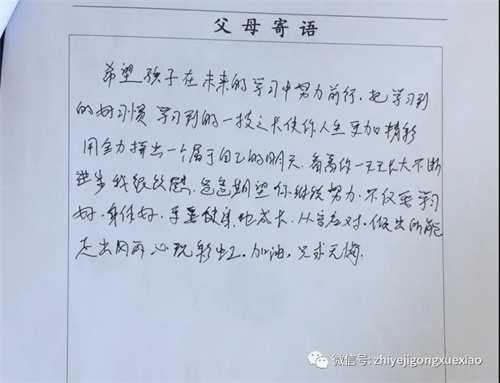 父母寄语
希望孩子在未来的学习中努力前行,把学习到
的好习惯 学习到的一技之长使你人生更加精彩
用全力拼出一个属于自己的明天.看着你一天天长大不断
进步我很欣慰. 期望你继续努力.不仅要学习
好.身体好.健康地成长.从容应对.
走出风雨 必现彩虹.加油.只求无悔.
微信号: zhiyejigongxuexiao